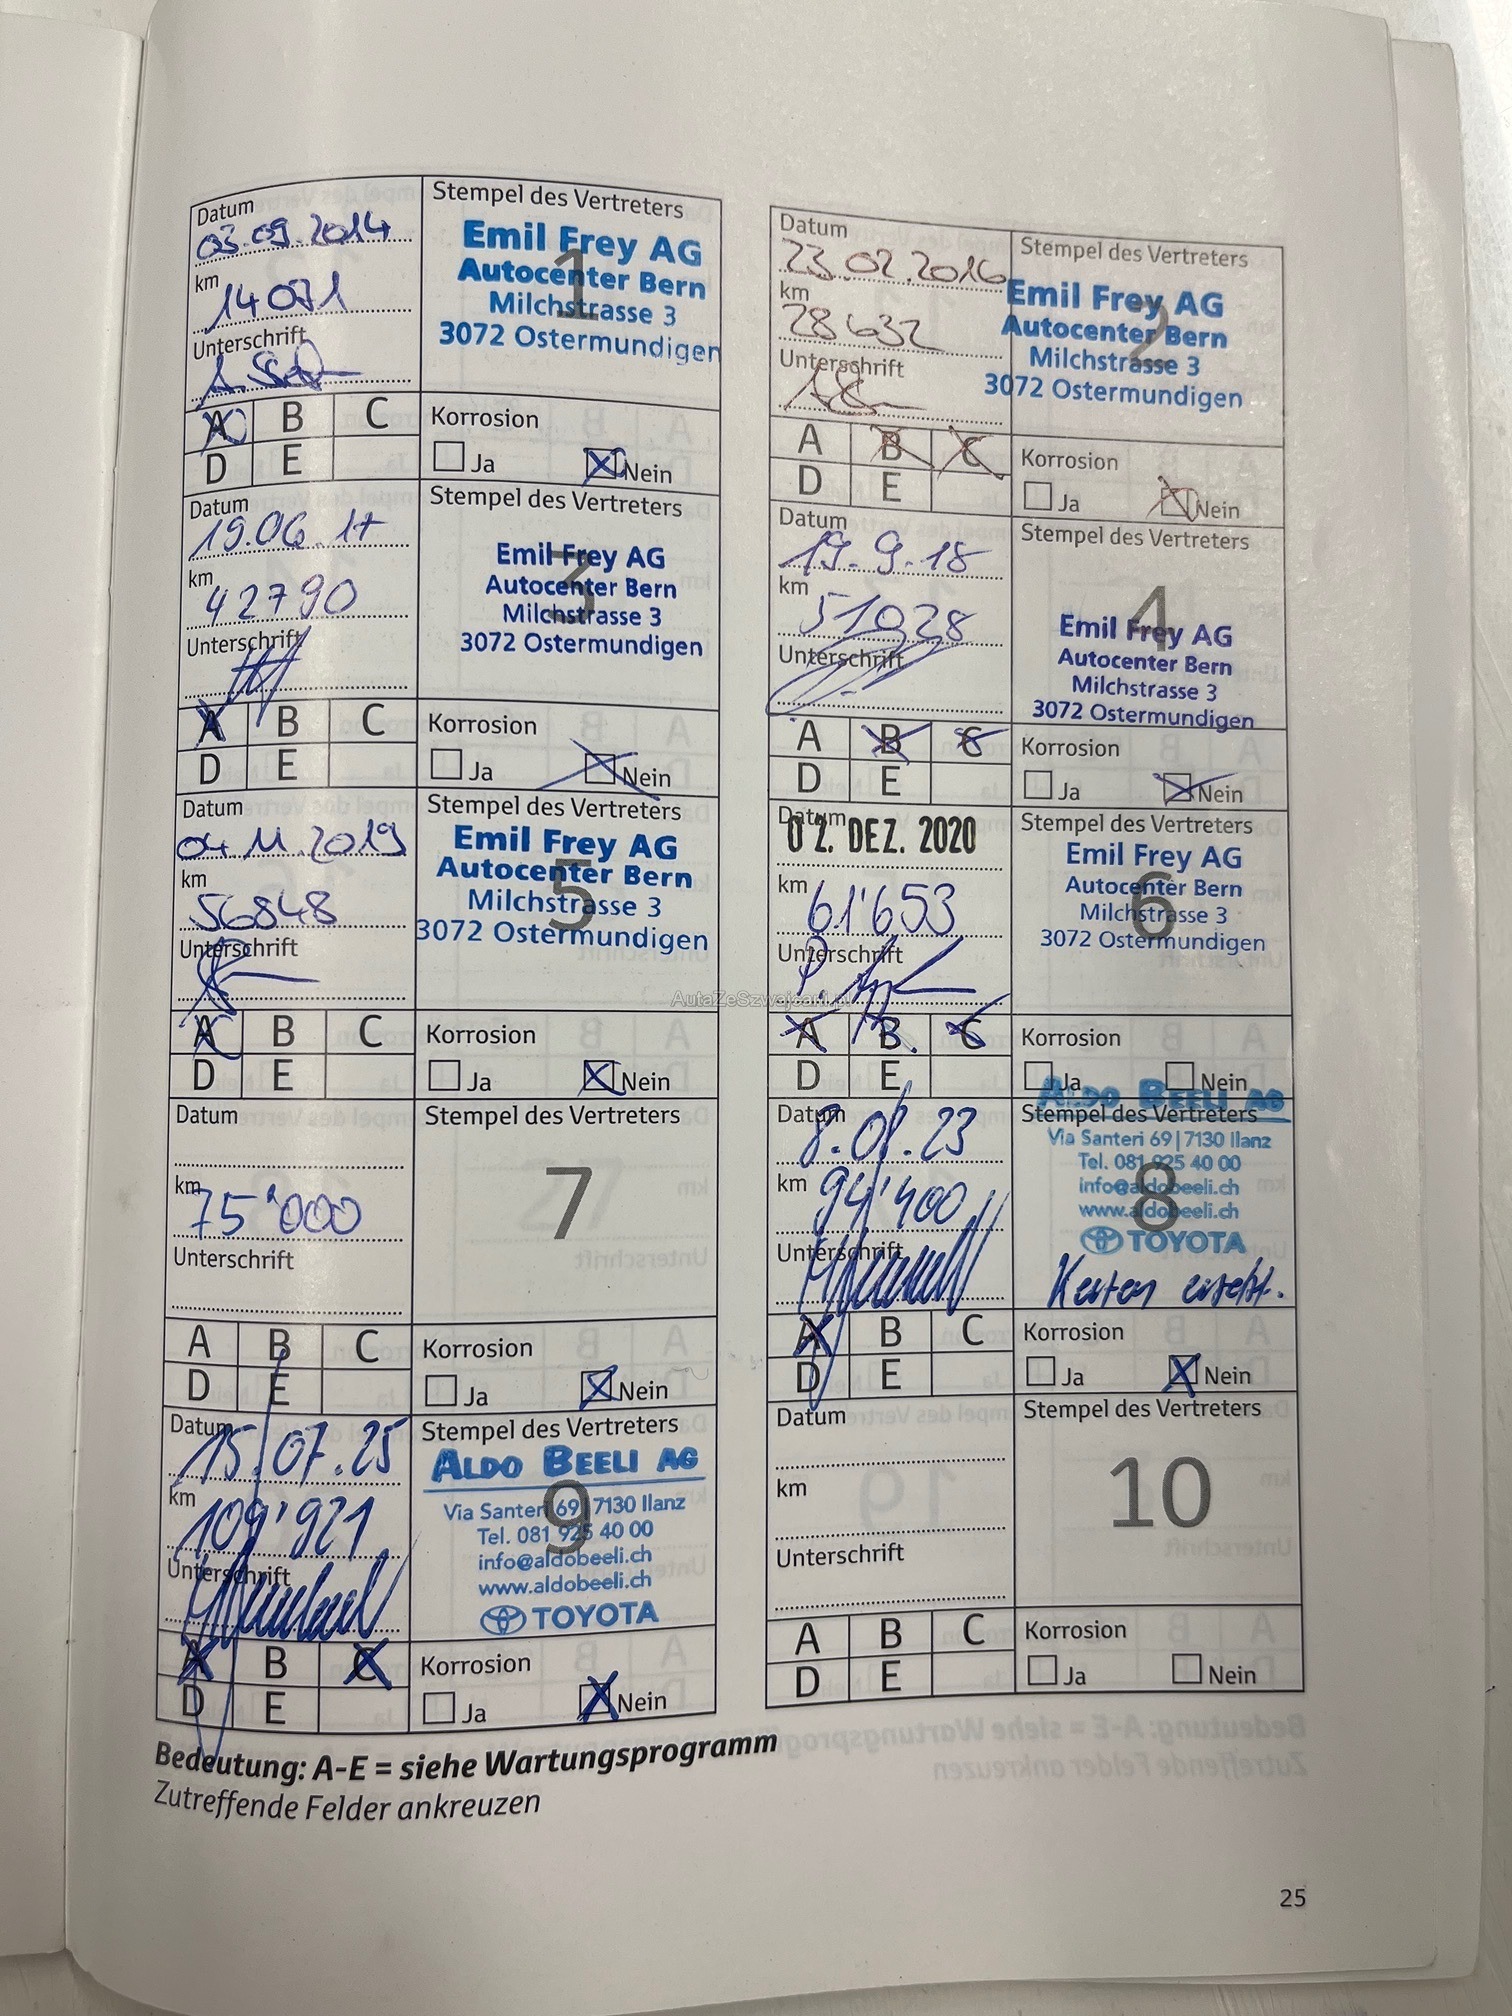 Datum
03.09.2014
km
14071
Unterschrift
A B C
D E
Stempel des Vertreters
1
Emil Frey AG
Autocenter Bern
Milchstrasse 3
3072 Ostermundigen
Korrosion
Ja Nein
Datum
23.02.2016
km
28632
Unterschrift
A B C
D E
Stempel des Vertreters
2
Emil Frey AG
Autocenter Bern
Milchstrasse 3
3072 Ostermundigen
Korrosion
Ja Nein
Datum
19.06.17
km
42790
Unterschrift
A B C
D E
Stempel des Vertreters
3
Emil Frey AG
Autocenter Bern
Milchstrasse 3
3072 Ostermundigen
Korrosion
Ja Nein
Datum
19.9.18
km
51028
Unterschrift
A B C
D E
Stempel des Vertreters
4
Emil Frey AG
Autocenter Bern
Milchstrasse 3
3072 Ostermundigen
Korrosion
Ja Nein
Datum
04.11.2019
km
56848
Unterschrift
A B C
D E
Stempel des Vertreters
5
Emil Frey AG
Autocenter Bern
Milchstrasse 3
3072 Ostermundigen
Korrosion
Ja Nein
Datum
02. DEZ. 2020
km
61'653
Unterschrift
A B C
D E
Stempel des Vertreters
6
Emil Frey AG
Autocenter Bern
Milchstrasse 3
3072 Ostermundigen
Korrosion
Ja Nein
AutaZeSzwajcarii.pl
Datum
km
75'000
Unterschrift
A B C
D E
Stempel des Vertreters
7
Korrosion
Ja Nein
Datum
km
94'400
Unterschrift
A B C
D E
ALDO BEELI AG
Stempel des Vertreters
8
Via Santeri 69 | 7130 Ilanz
Tel. 081 925 40 00
info@aldobeeli.ch
www.aldobeeli.ch
TOYOTA
ersetzt.
Korrosion
Ja Nein
Datum
15.07.25
km
109'921
Unterschrift
A B C
D E
Stempel des Vertreters
9
ALDO BEELI AG
Via Santeri 69 | 7130 Ilanz
Tel. 081 925 40 00
info@aldobeeli.ch
www.aldobeeli.ch
TOYOTA
Korrosion
Ja Nein
Datum
km
Unterschrift
A B C
D E
Stempel des Vertreters
10
Korrosion
Ja Nein
Bedeutung: A-E = siehe Wartungsprogramm
Zutreffende Felder ankreuzen
25